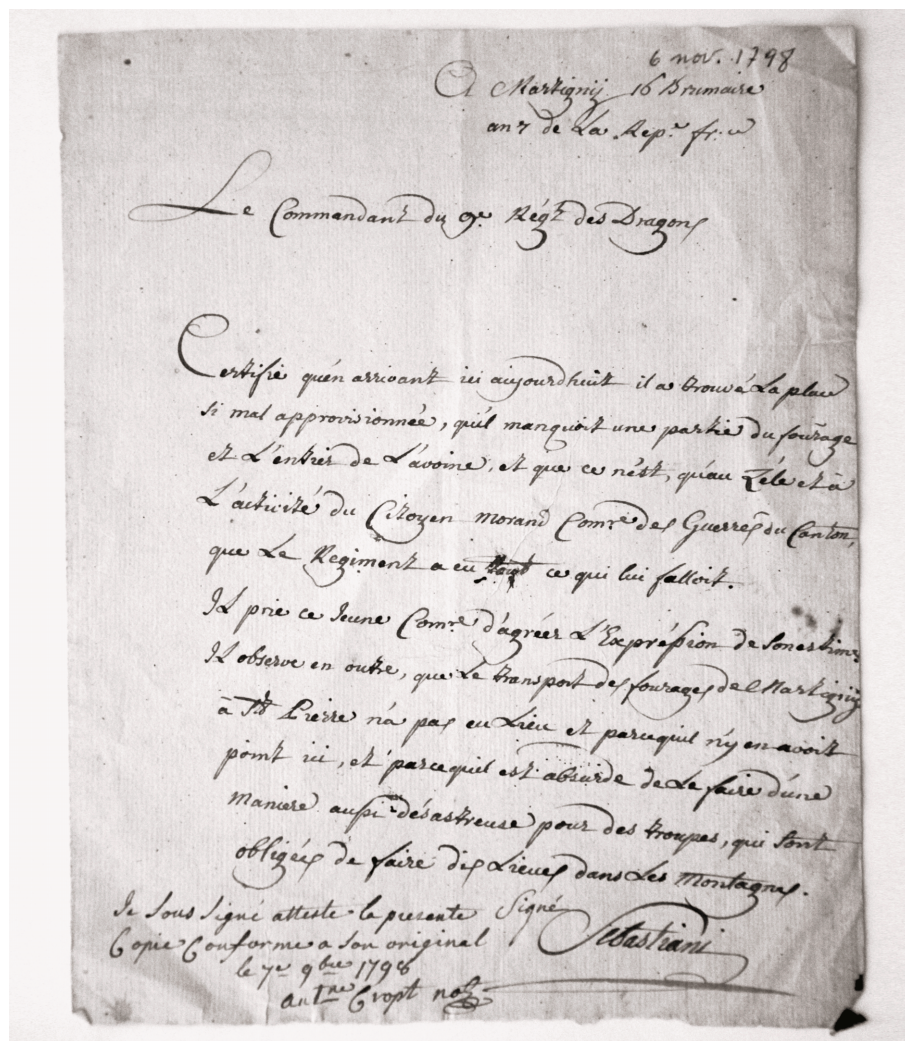 6 nov. 1798
A Martigny 16 Brumaire
an 7 de La Rep.e fr.e
Le Commandant du 9e Régt des Dragons
Certifie qu'en arrivant ici aujourdhuit il a trouvé La place
si mal approvisionnée, qu'il manquoit une partie du fourage
et L'entier de L'avoine, et que ce n'est, qu'au Zéle et à
L'activité du Citoyen Morand Comre des Guerres du Canton,
que Le Regiment a eu ce qui lui falloit.
Il prie ce Jeune Comre d'agréer L'Expréssion de Son estime
Il observe en outre, que Le transport des fourages de Martigny
à St Pierre n'a pas eu Lieu et parcequil n'y en avoit
point ici, et parcequil est absurde de Le faire d'une
maniere aussi désastreuse pour des troupes, qui Sont
obligées de faire dix Lieues dans Les Montagnes.
Je Sous Signé atteste la presente Signé
Copie Conforme a Son original Sebastiani
le 7e 9bre 1798
Antne Cropt not